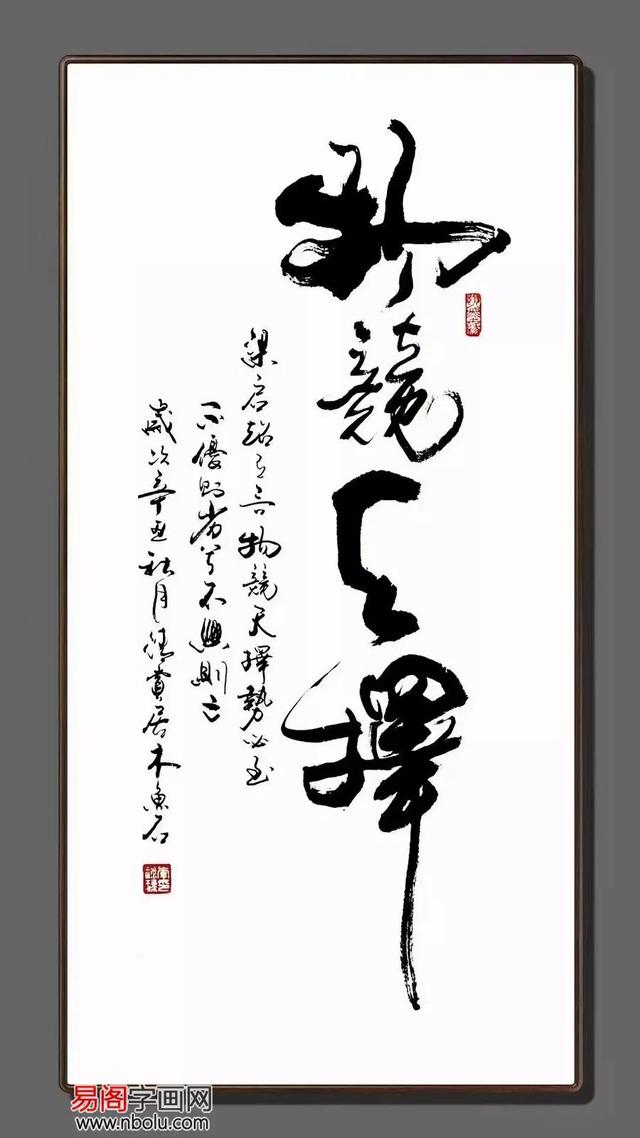 物競天擇
梁启超之言物競天擇勢必至
不優則劣兮不興則亡
歲次辛丑秋月賞居木魚石
易阁字画网
www.nbolu.com